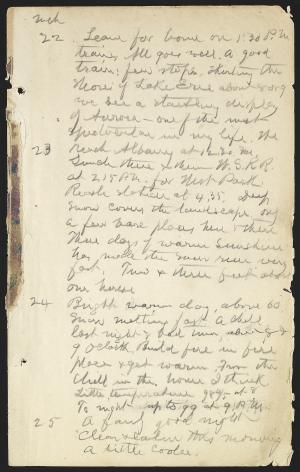 Mch
22 Leave for home on 1:30 P.M.
train, all goes well. A good
train; few stops. Skirting the
shore of Lake Erie about 8 or 9
we see a startling display
of Aurora – one of the most
spectacular in my life. We
23 reach Albany at 12.30 Am.
Lunch there & then W.S.R.R.
at 2.15 P.M. for West Park
Reach station at 4.35. Deep
snow covers the landscape, only
a few bare places here & there
Three days of warm sunshine
has made the snow run very
fast. Two & three feet about
our house
24 Bright warm day, above 60
Snow melting fast. A chill
last night & had
9 oclock. Build fire in fire
place & get warm. From the
chill in the house I think
Little temperature
To night up to 99 at 9 P.M.
25 A fairly good night
Clear & calm this morning
a little cooler.